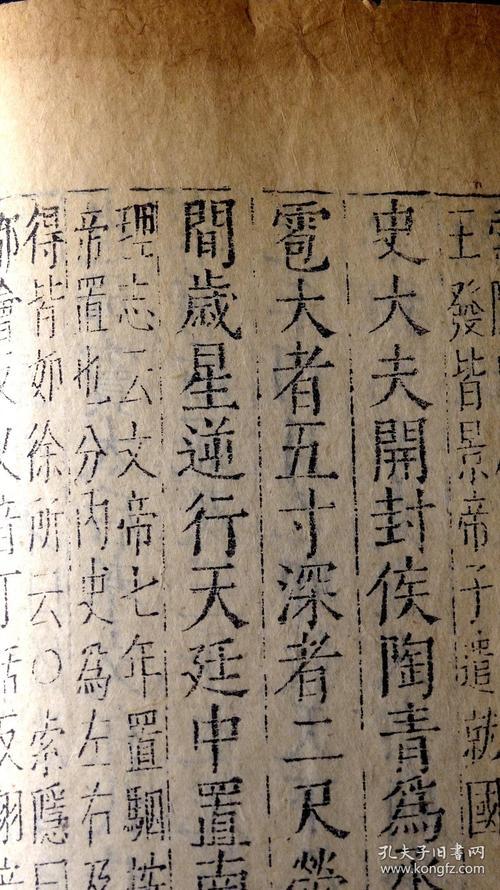 王發皆景帝子遣就國
史大夫開封侯陶青為
雹大者五寸深者二尺
間歲星逆行天廷中置南
理志云文帝七年置駰按
帝置也分內史為左右及
得皆如徐所云〇索隱曰
孔夫子旧书网
www.kongfz.com